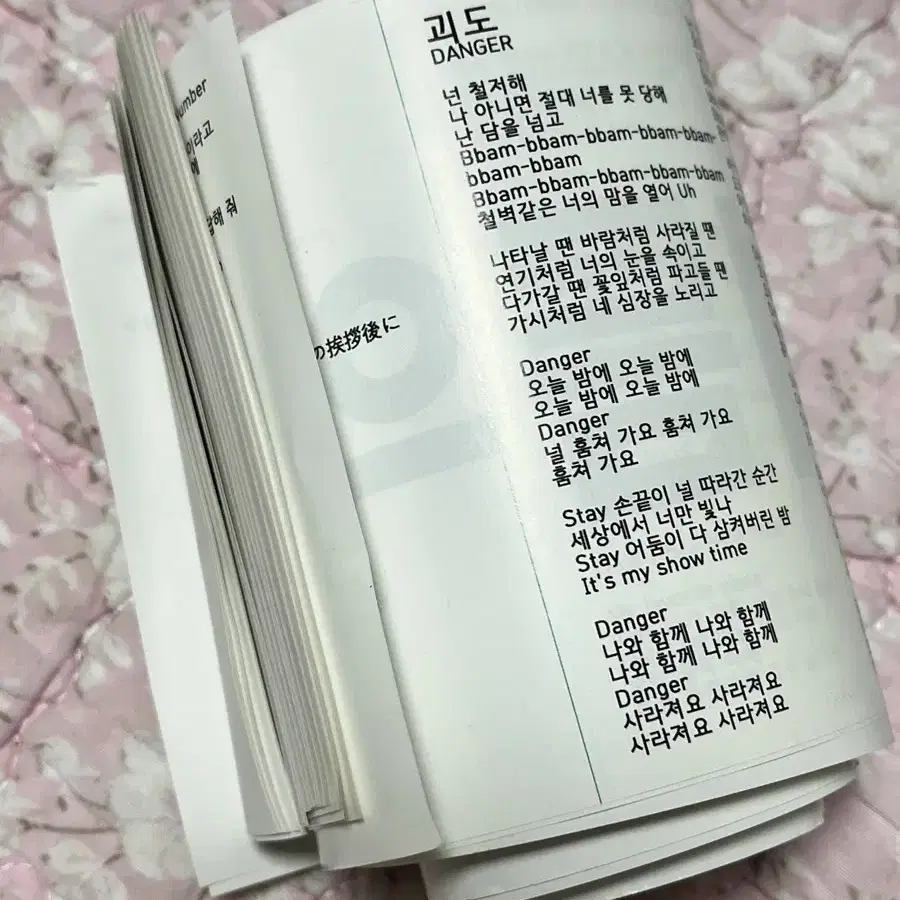 umber
이라고
에
답해 줘
の挨拶後に
괴도
DANGER
넌 철저해
나 아니면 절대 너를 못 당해
난 담을 넘고
Bbam-bbam-bbam-bbam-bbam-
bbam-bbam
Bbam-bbam-bbam-bbam-bbam
철벽같은 너의 맘을 열어 Uh
나타날 땐 바람처럼 사라질 땐
연기처럼 너의 눈을 속이고
다가갈 땐 꽃잎처럼 파고들 땐
가시처럼 네 심장을 노리고
Danger
오늘 밤에 오늘 밤에
오늘 밤에 오늘 밤에
Danger
널 훔쳐 가요 훔쳐 가요
훔쳐 가요
Stay 손끝이 널 따라간 순간
세상에서 너만 빛나
Stay 어둠이 다 삼켜버린 밤
It's my show time
Danger
나와 함께 나와 함께
나와 함께 나와 함께
Danger
사라져요 사라져요
사라져요 사라져요